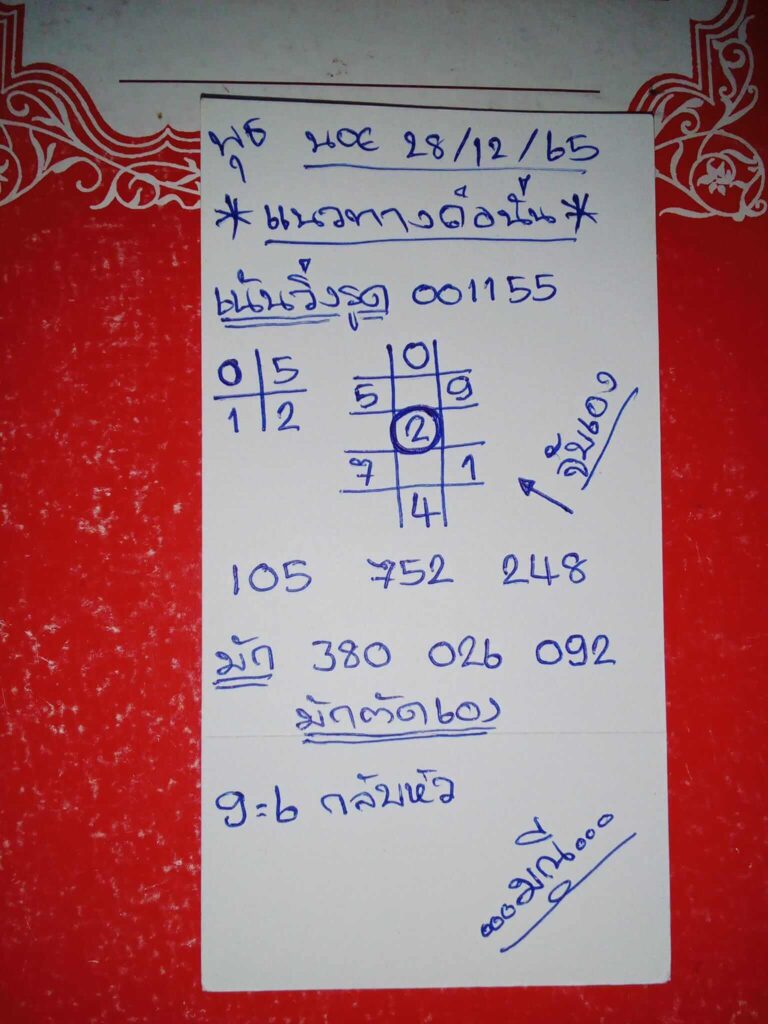 พุธ นอย 28/12/65
* แนวทางดอยนั้น *
เน้นวิ่งรูด 001155
0 5
1 2
0
5 9
2
7 1
4
จับเอง
105 752 248
มัก 380 026 092
มักตัดเอง
9=6 กลับหัว
...มณี...